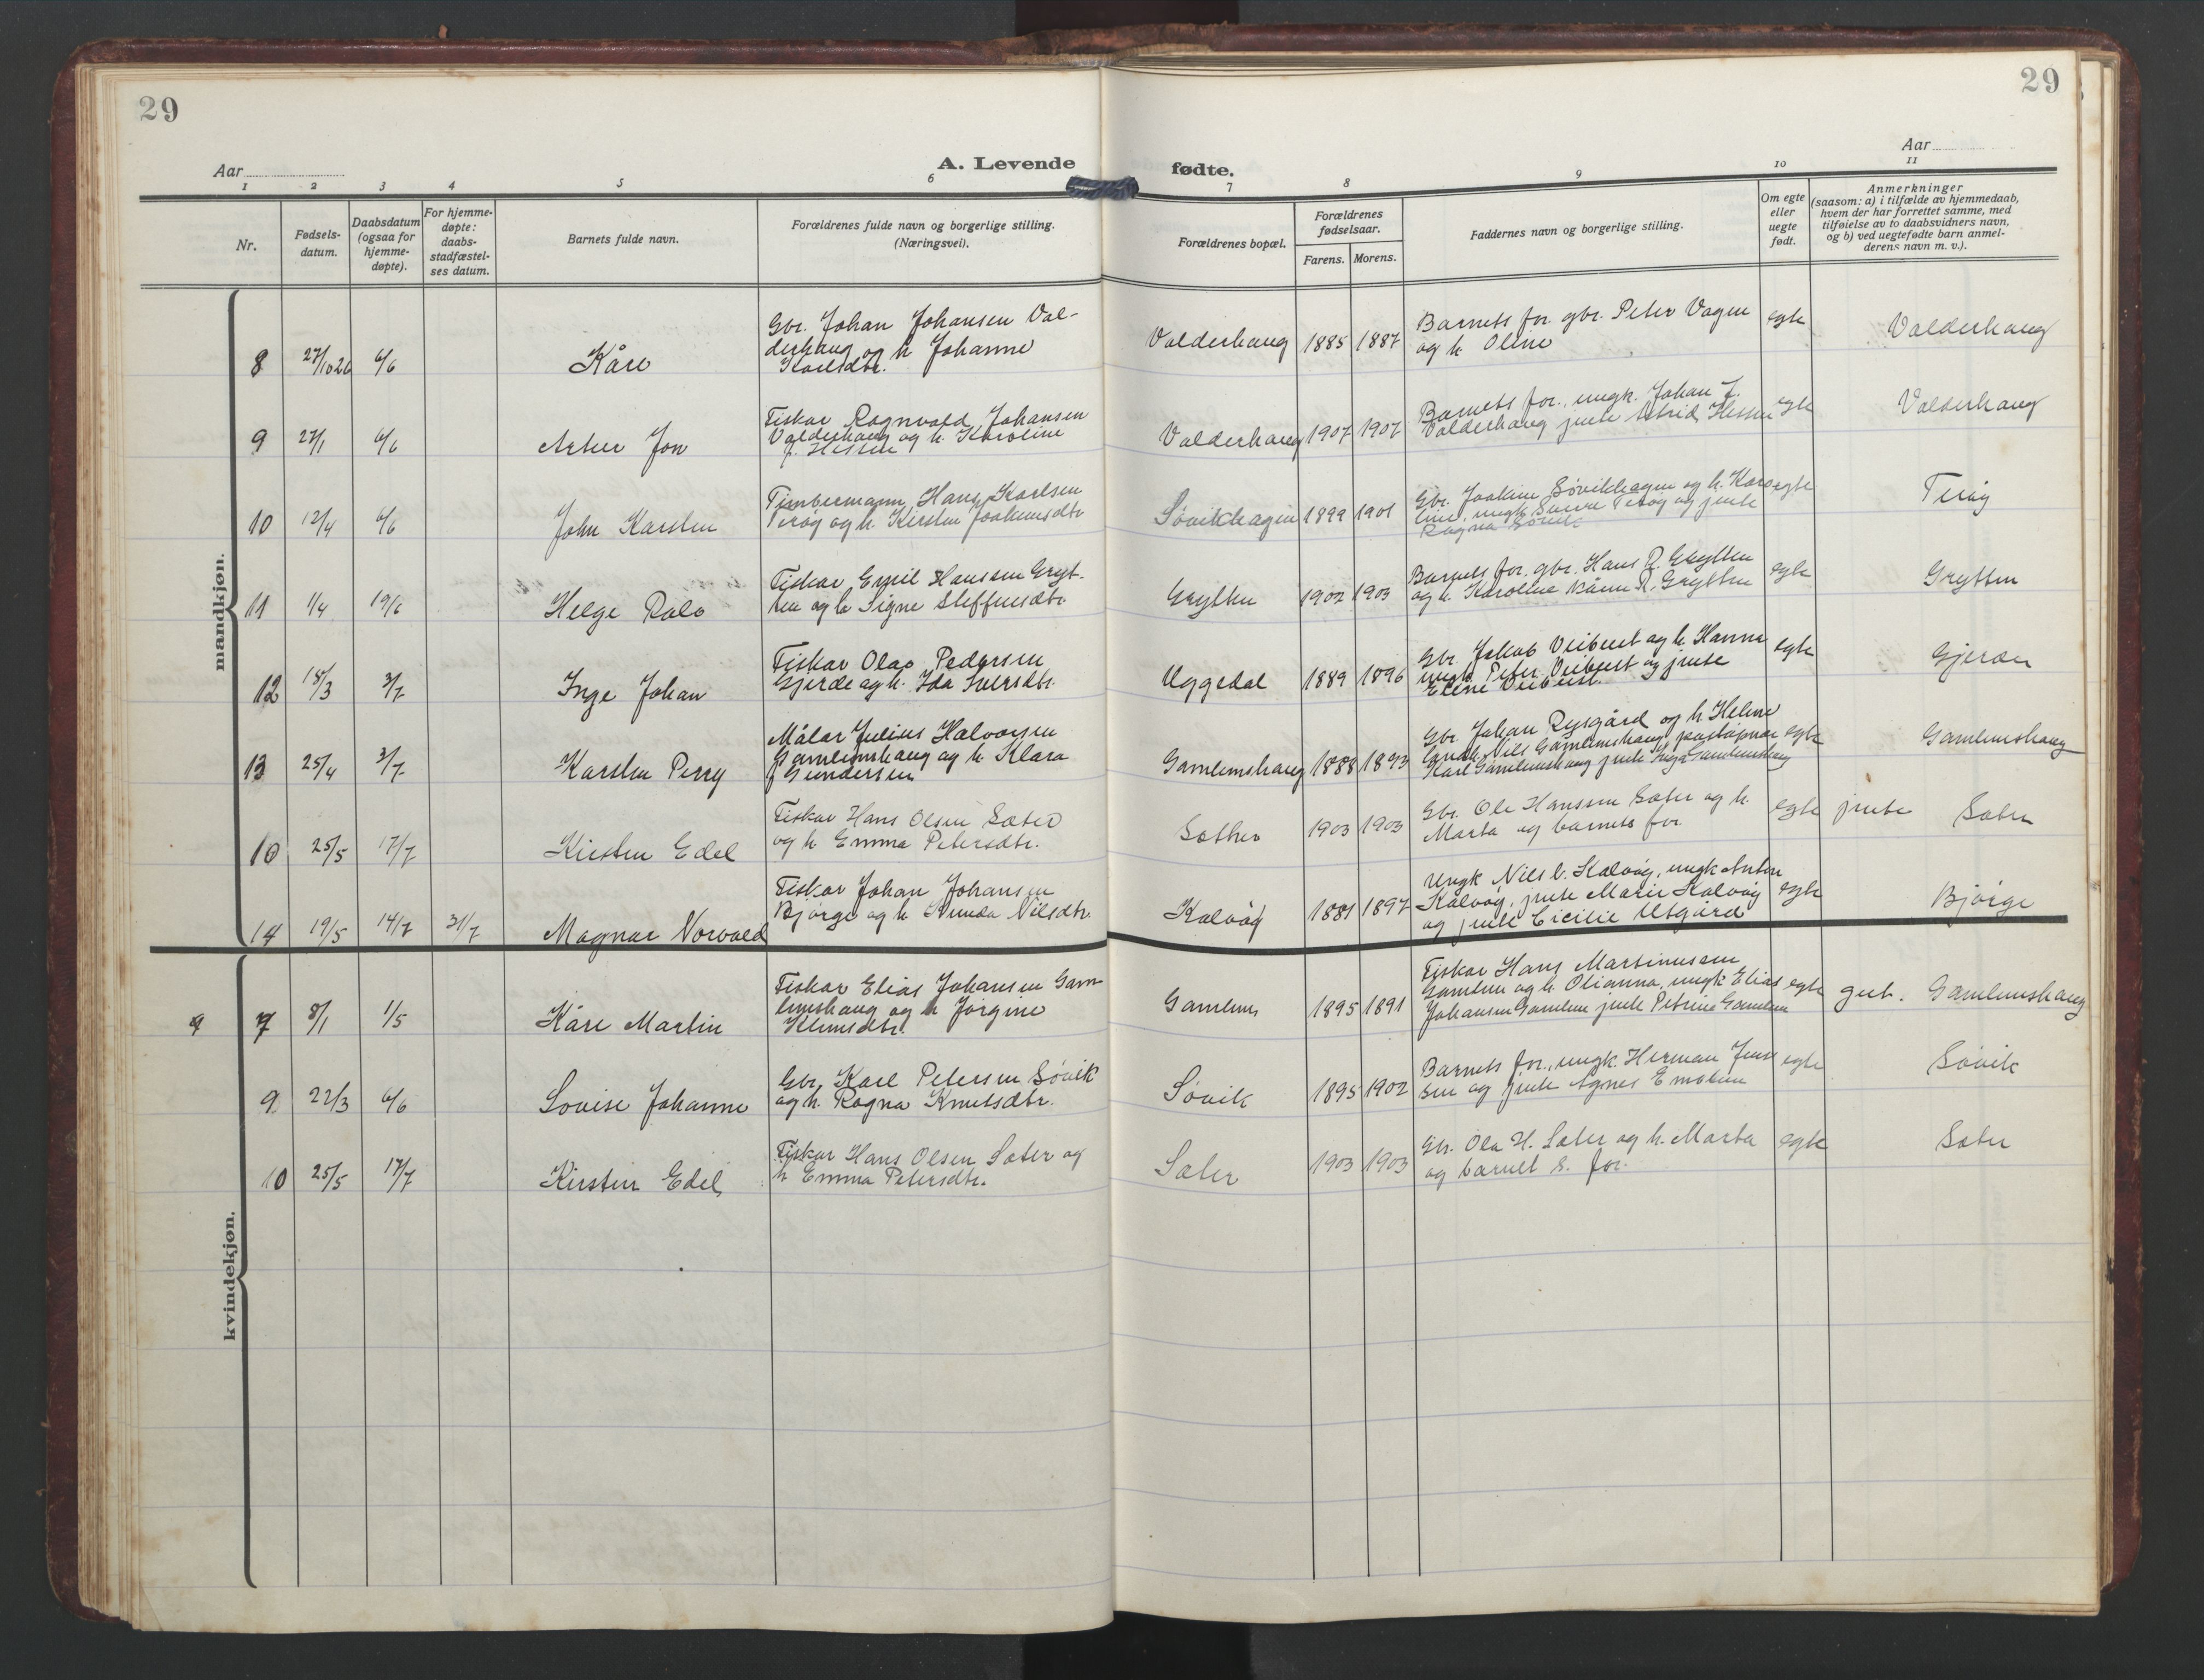 29
29
Aar
A. Levende
fødte.
Aar
1 2 3 4 5 6 7 8 9 10 11
Nr.
Fødsels-
datum.
Daabsdatum
(ogsaa for
hjemme-
døpte).
For hjemme-
døpte:
daabs-
stadfæstel-
ses datum.
Barnets fulde navn.
Forældrenes fulde navn og borgerlige stilling.
(Næringsvei).
Forældrenes bopæl.
Forældrenes
fødselsaar.
Farens. Morens.
Faddernes navn og borgerlige stilling.
Om egte
eller
uegte
født.
Anmerkninger
(saasom: a) i tilfælde av hjemmedaab,
hvem der har forrettet samme, med
tilføielse av to daabsvidners navn,
og b) ved uegtefødte barn anmel-
derens navn m. v.).
mandkjøn.
8 27/10 26 6/6 Kåre
Gbr. Johan Johansen Val-
derhaug og h Johanne
Karlsdtr.
Valderhaug 1885 1887
Barnets for. gbr. Peter Vagen
og h Oline
egte Valderhaug
9 27/1 6/6 Jon
Fiskar Ragnvald Johansen
Valderhaug og h. Karoline
f. Hessen
Valderhaug 1907 1907
Barnets for., ungk. Johan J.
Valderhaug jente Astrid Hessen
egte Valderhaug
10 12/4 6/6 John Karsten
Timbermann Hans Karlsen
Terøy og h. Kirsten Joakimsdtr
Søvikhagen 1899 1901
Gbr. Joakim Søvikhagen og h. Karo-
line, ungk Terøy og jente
Ragna Søvik
egte Terøy
11 1/4 19/6 Helge
Fiskar Emil Hanssen Gryt-
ten og h Signe Steffensdtr
Grytten 1902 1903
Barnets for. gbr. Hans R. Grytten
og h. Karoline R. Grytten
egte Grytten
12 18/3 3/7 Inge Johan
Fiskar Olav Pedersen
Gjerde og h. Ida Iversdtr.
Uggedal 1889 1896
Gbr. Jakob Veibust og h Hanna
ungk. Peter Veibust og jente
Eline Veibust.
egte
13 25/4 3/7 Karsten Perry
Målar Julius Halvorsen
Gamlemshaug og h Klara
f Gundersen
Gamlemshaug 1888 1893
Gbr. Johan Rysgård og h Heline
Nils Gamlemshaug postopnar
Karl Gamlemshaug jente Inga Gamlemshaug
egte Gamlemshaug
10 25/5 17/7 Kirsten Edel
Fiskar Hans Olsen Sæter
og h Emma Petersdtr.
Sæther 1903 1903
Gbr. Ole Hanssen Sæter og h.
Marta og barnets for
egte jente Sæter
14 19/5 14/7 31/7 Magnar Norvald
Fiskar Johan Johansen
Bjørge og h Nilsdtr.
Kalvøy 1881 1897
Ungk Nils C. Kalvøy, ungk Anton
Kalvøy, jente Marie Kalvøy
og jente Cicilie Utgård
egte Bjørge
kvindekjøn.
7 8/1 1/5 Kåre Martin
Fiskar Elias Johansen Gam-
lemshaug og h Jørgine
Klemsdtr.
Gamlem 1895 1891
Fiskar Hans Martinussen
Gamlem og h Olianna, ungk Elias
Johansen Gamlem jente Petrine Gamlem
egte gut. Gamlemshaug
9 22/3 6/6 Lovise Johanne
Gbr. Karl Petersen Søvik
og h. Ragna Knutsdtr.
Søvik 1895 1902
Barnets for., ungk. Herman Jen-
sen og jente Agnes Emblem
egte Søvik
10 25/5 17/7 Kirsten Edel
Fiskar Hans Olsen Sæter og
h Emma Petersdtr.
Sæter 1903 1903
Gbr. Ola H. Sæter og h. Marta
og barnet s. for.
egte Sæter